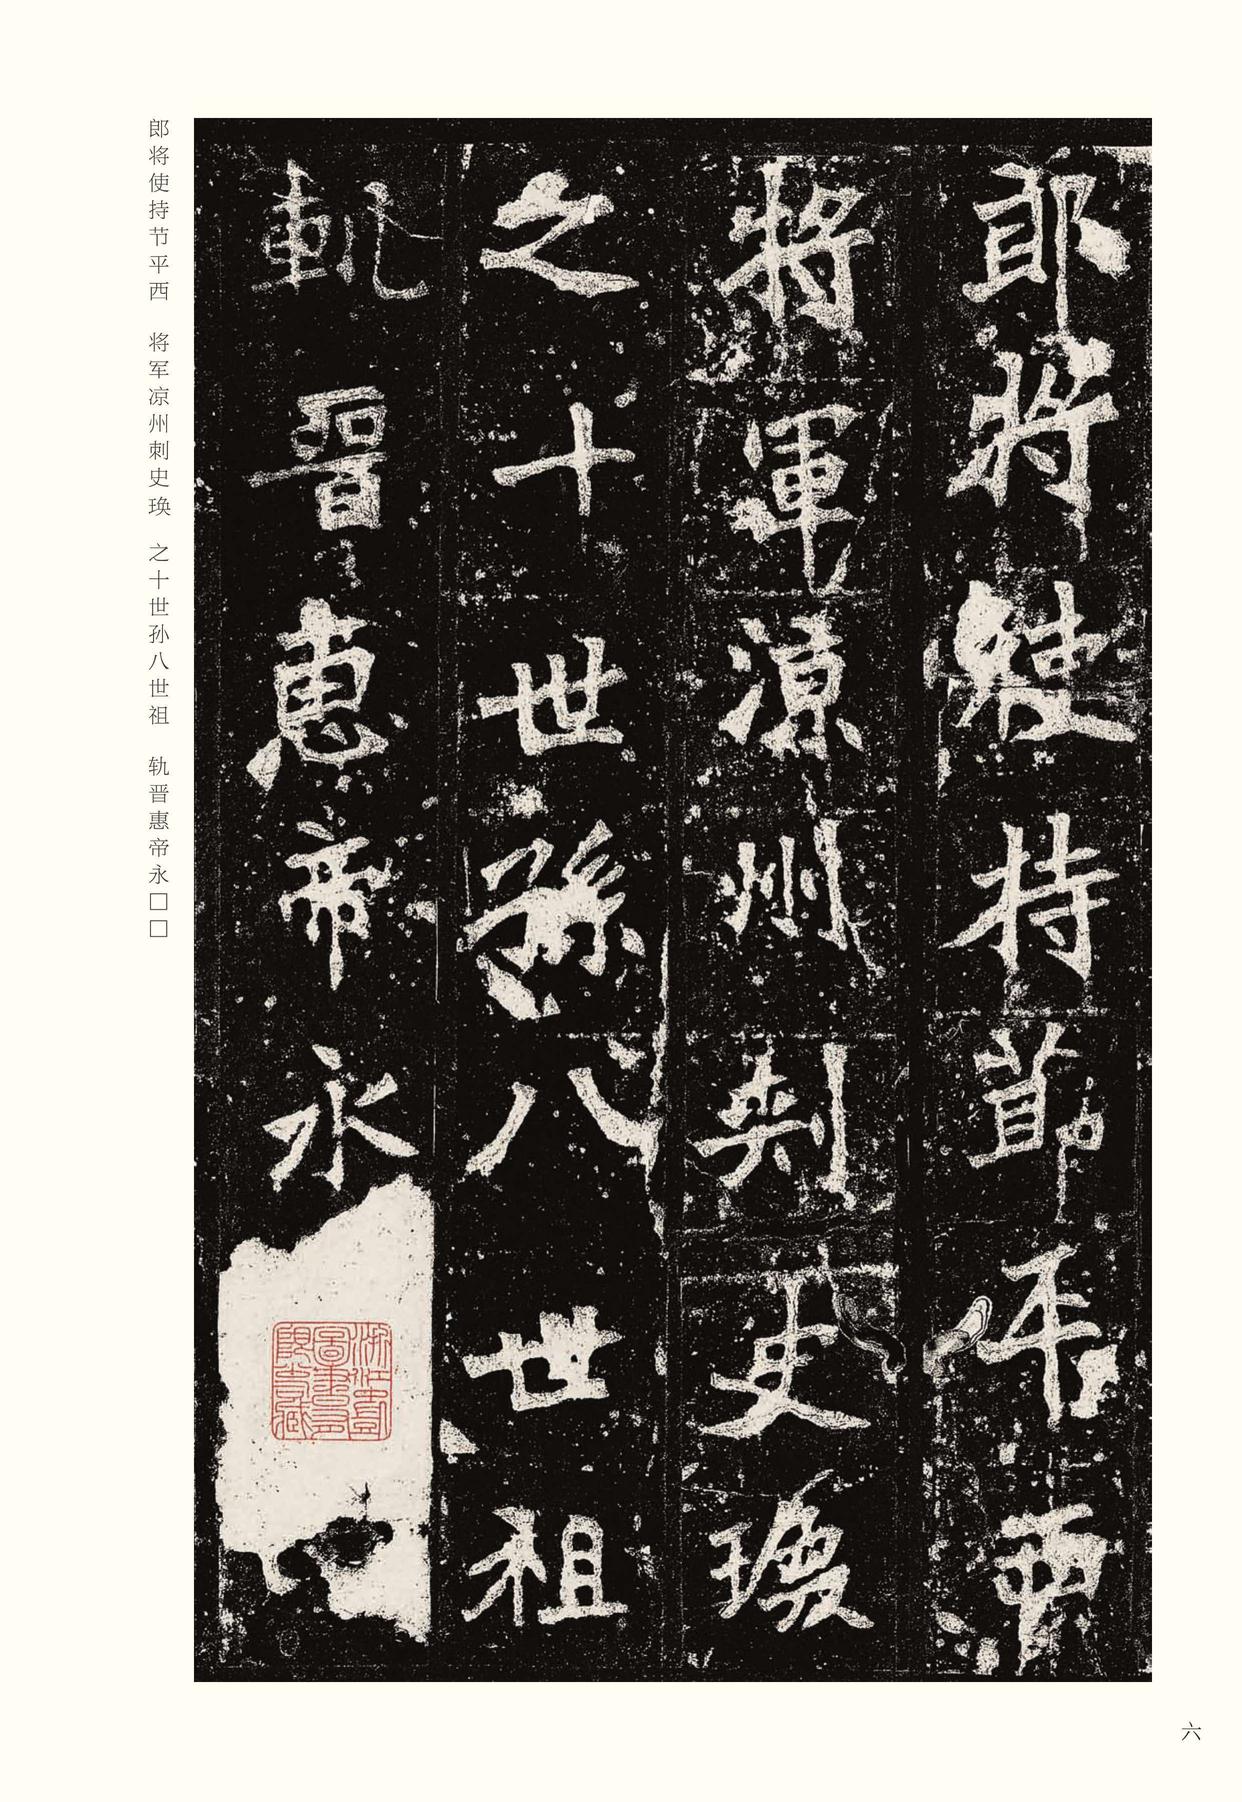 郎将使持节平西　将军凉州刺史瑍　之十世孙八世祖　轨晋惠帝永□□
郎將使持節平西
將軍涼州刺史瑍
之十世孫八世祖
軌晉惠帝永
六